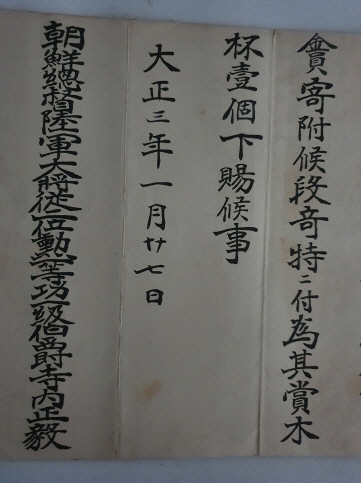 金員寄附候段奇特ニ付為其賞木
杯壹個下賜候事
大正三年一月廿七日
朝鮮總督陸軍大將從二位勲一等功一級伯爵寺内正毅